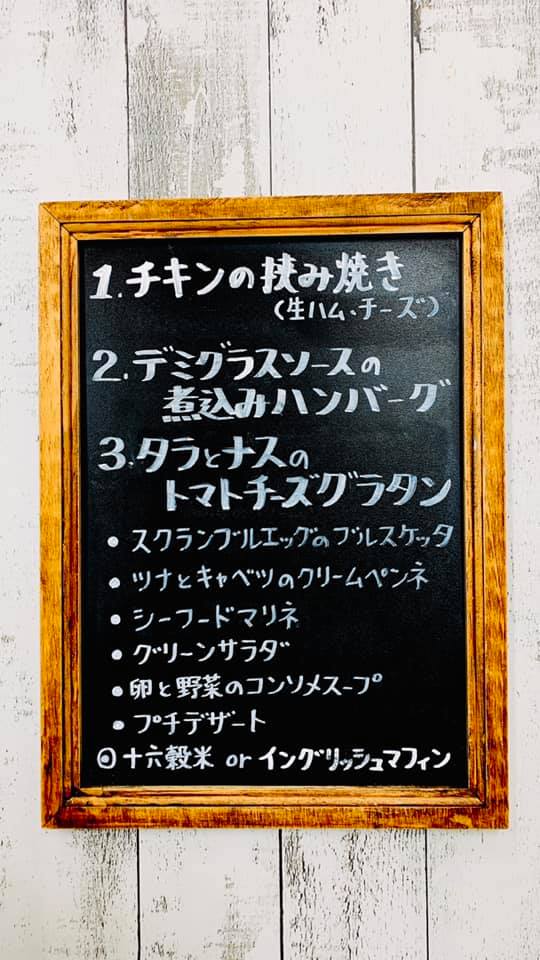 1.チキンの挟み焼き
(生ハム・チーズ)
2.デミグラスソースの
煮込みハンバーグ
3.タラとナスの
トマトチーズグラタン
• スクランブルエッグのブルスケッタ
• ツナとキャベツのクリームペンネ
• シーフードマリネ
• グリーンサラダ
• 卵と野菜のコンソメスープ
• プチデザート
◎ 十六穀米 or イングリッシュマフィン